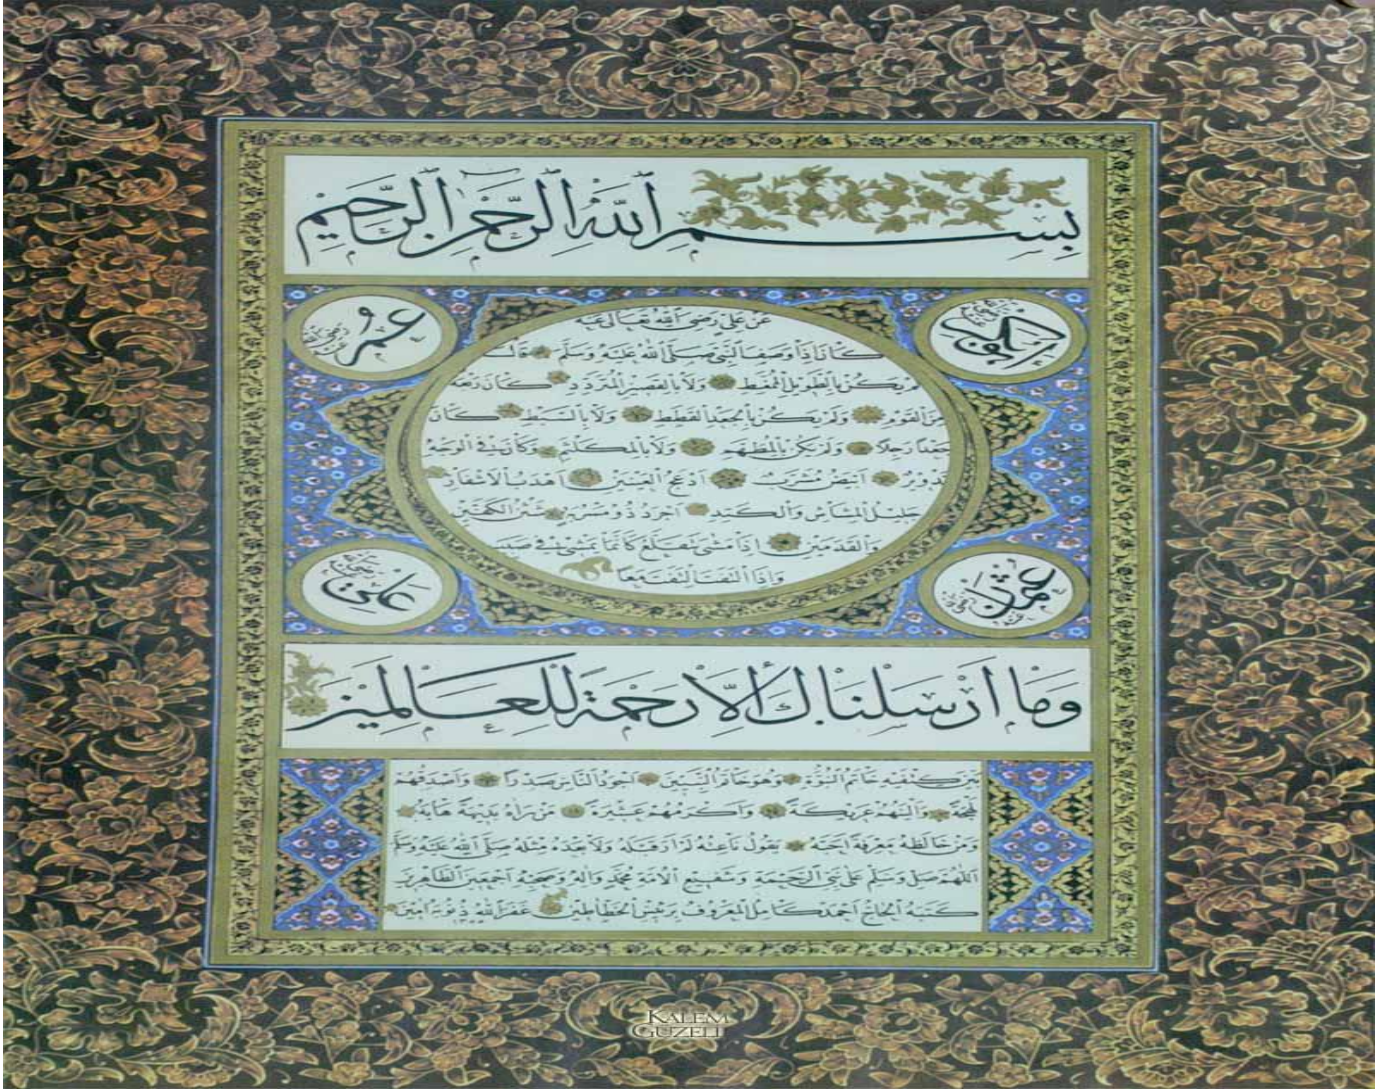 بِسْمِ ٱللَّهِ ٱلرَّحْمٰنِ ٱلرَّحِيمِ
ابوبكر رضي الله عنه
عمر رضي الله عنه
عن علي رضي الله تعالى عنه
كان اذا وصف النبي صلى الله عليه وسلم قال
لم يكن بالطويل الممغط ولا بالقصير المتردد كان ربعة
من القوم ولم يكن بالجعد القطط ولا بالسبط كان
جعدا رجلا ولم يكن بالمطهم ولا بالمكلثم وكان في الوجه
تدوير ابيض مشرب ادعج العينين اهدب الاشفار
جليل المشاش والكتد اجرد ذو مسربة شثن الكفين
والقدمين اذا مشى تقلع كانما يمشي في صبب
واذا التفت التفت معا
عثمان رضي الله عنه
علي رضي الله عنه
وما ارسلناك الا رحمة للعالمين
بين كتفيه خاتم النبوة وهو خاتم النبيين اجود الناس صدرا واصدقهم
لهجة والينهم عريكة واكرمهم عشيرة من راه بديهة هابه
ومن خالطه معرفة احبه يقول ناعته لم ار قبله ولا بعده مثله صلى الله عليه وسلم
اللهم صل وسلم على نبي الرحمة وشفيع الامة محمد واله وصحبه اجمعين الطاهرين
كتبه الحاج احمد كامل المعروف برئيس الخطاطين غفر الله ذنوبه امين
KALEM
GÜZELİ